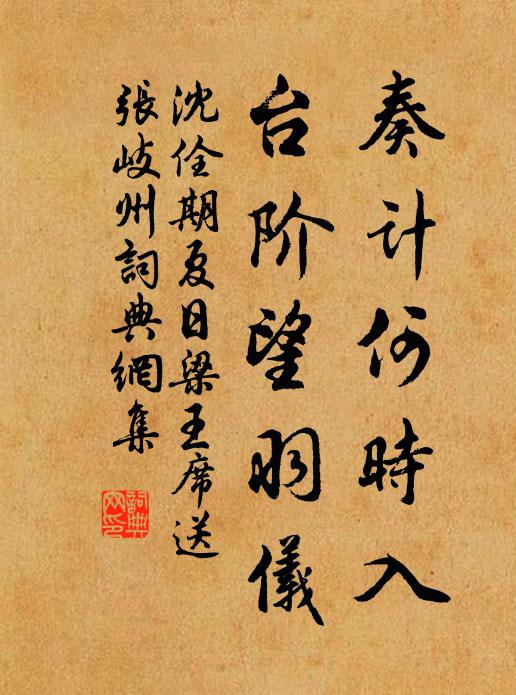 奏计何時入
台阶望羽儀
沈佺期夏日梁王席送
張岐州詞典網集
詞典網印